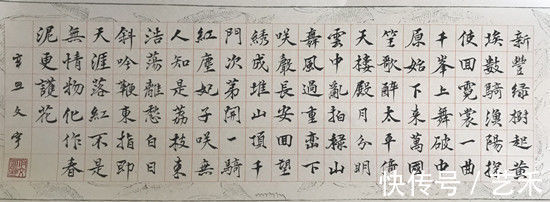 新豐綠樹起黃
埃數騎漁陽探
使回霓裳一曲
千峯上舞破中
原始下來萬國
笙歌醉太平倚
天樓殿月分明
雲中亂拍祿山
舞風過重巒下
咲聲長安回望
綉成堆山頂千
門次第開一騎
紅塵妃子咲無
人知是荔枝來
浩蕩離愁白日
斜吟鞭東指即
天涯落紅不是
無情物化作春
泥更護花
辛丑文宇
快传号 / 艺术